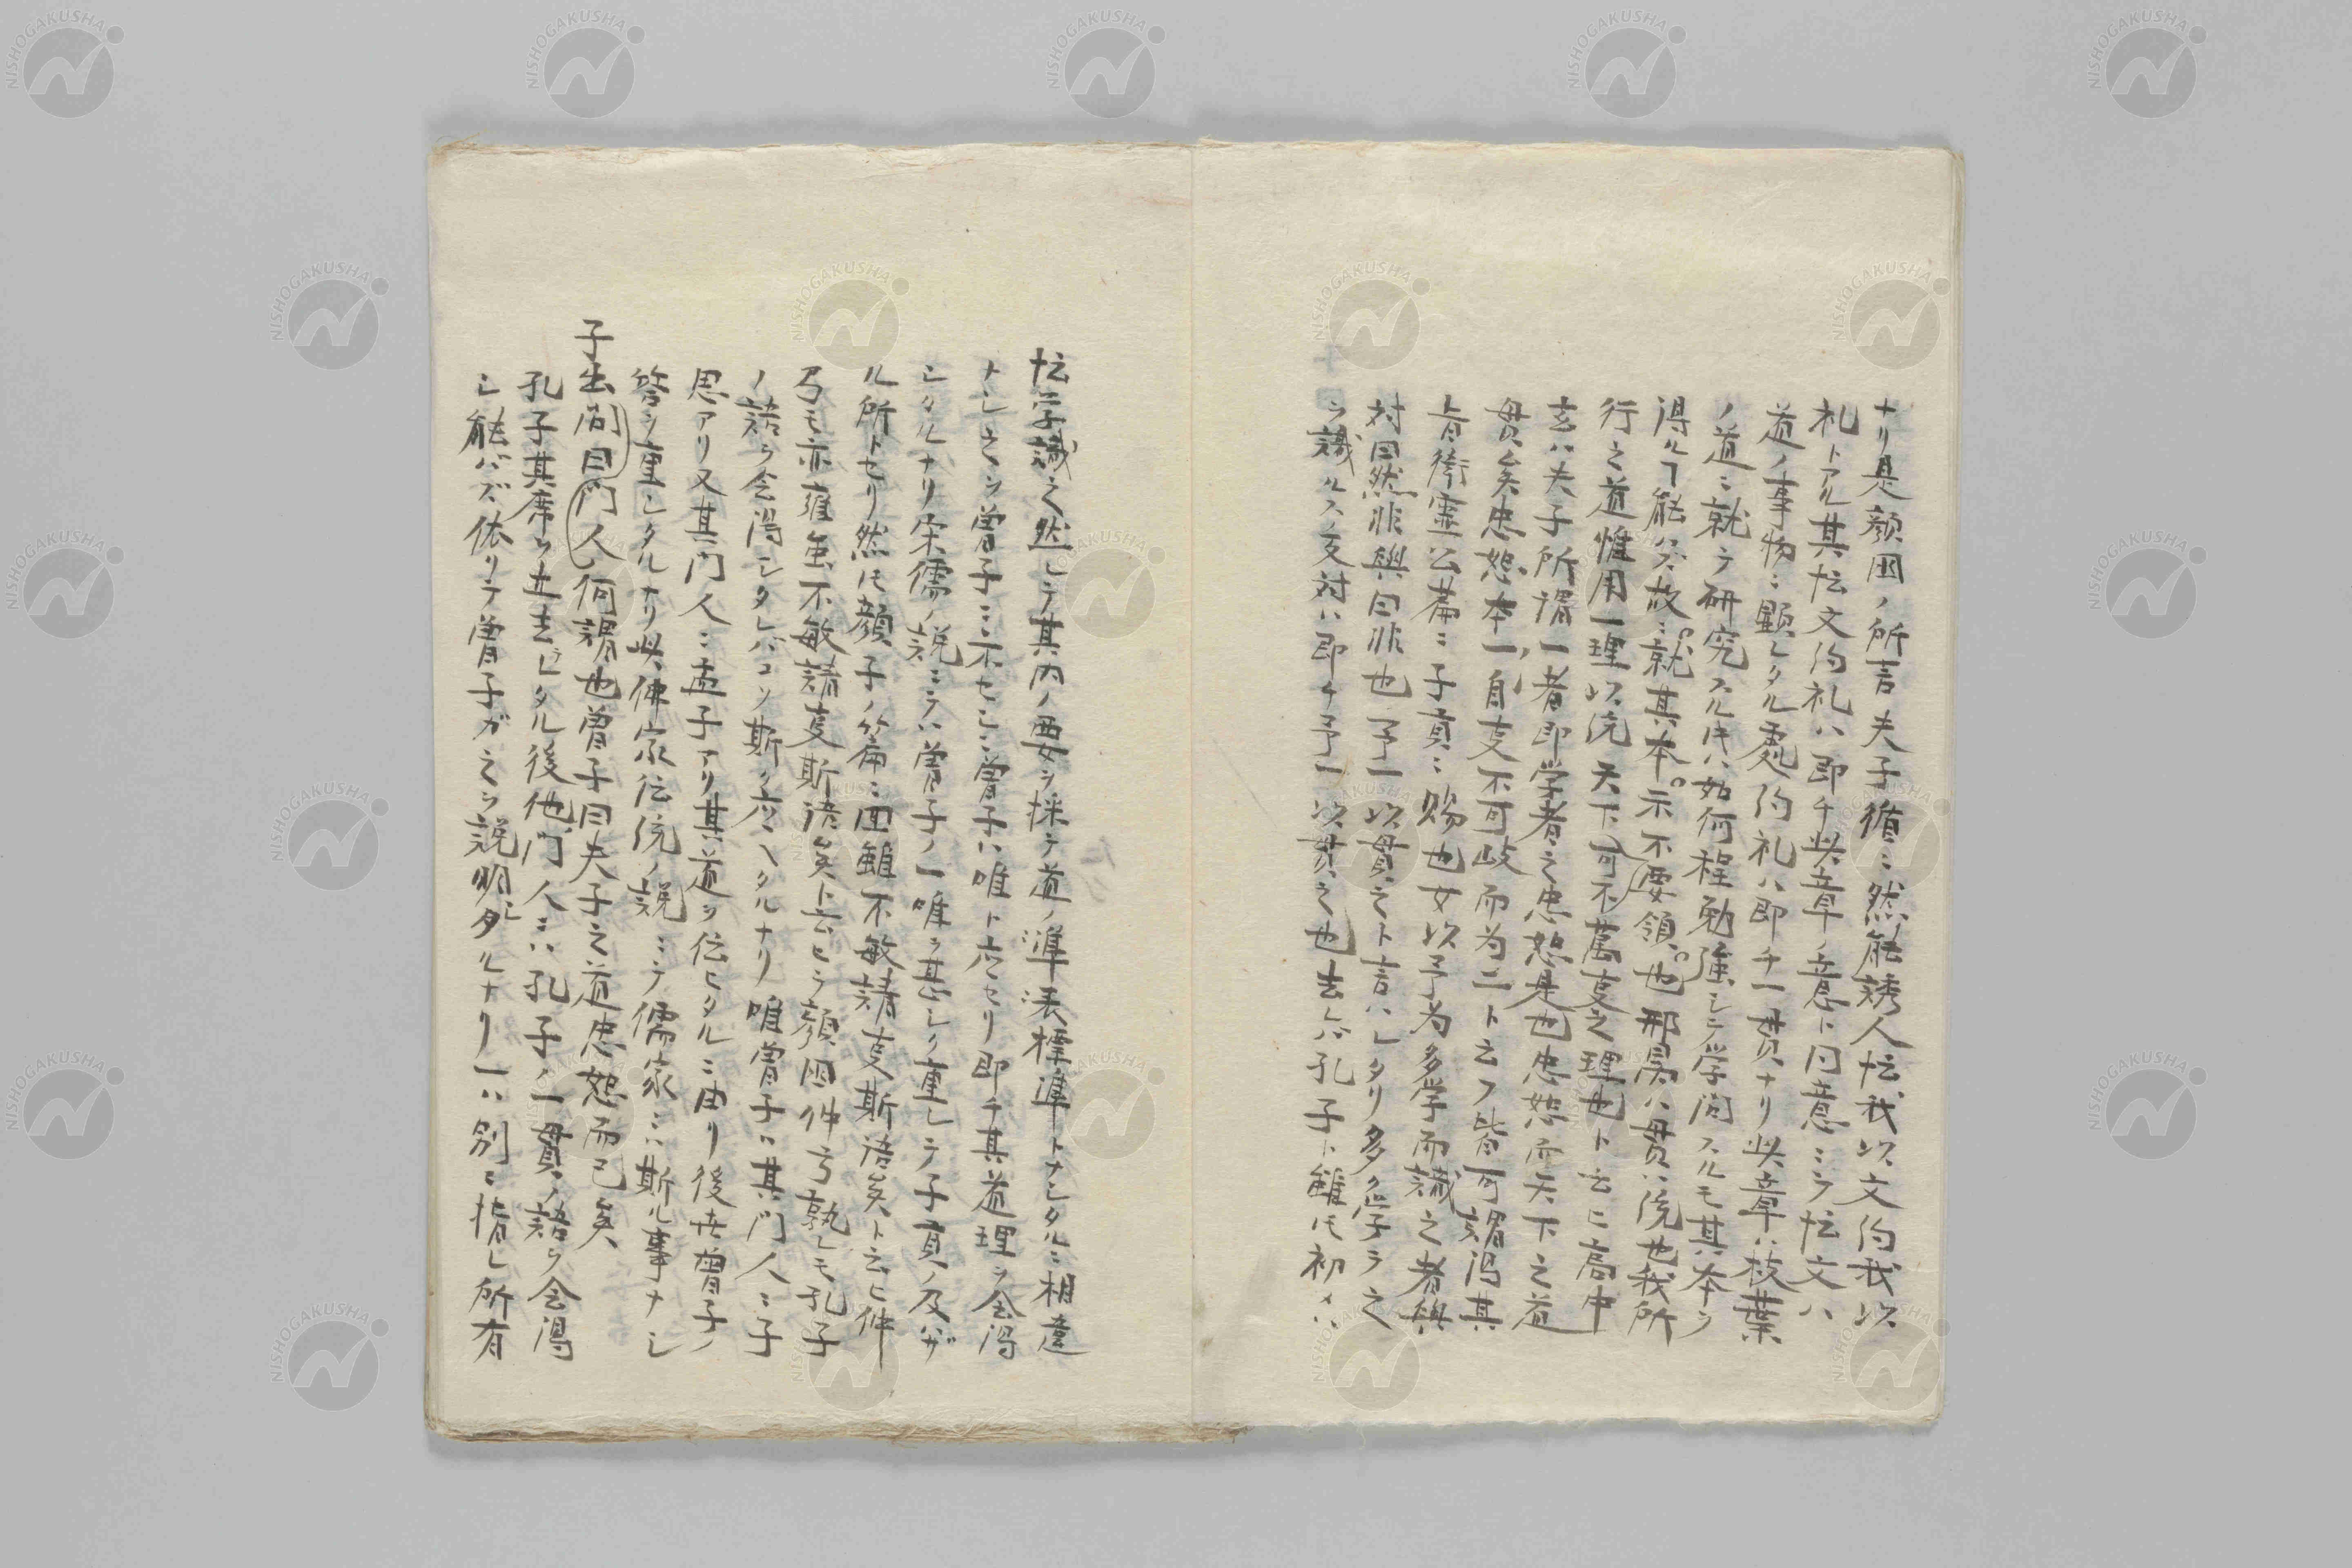 ナリ是顔囘ノ所言夫子循ニ然能誘人忟我以文約我以
礼トアル其忟文約礼ハ即チ此章ノ意ト同意ニテ忟文ハ
道ノ事物ニ顕レタル処約礼ハ即チ一貫ナリ此章ハ枝葉
ノ道ニ就テ研究スル𪜈ハ如何程勉強シテ学問スルモ其本ヲ
得ルヿ能ハズ故ニ就其本示不要領也邢昺ハ貫ハ統也我所
行之道惟用一理以統天下可不萬叓之理也ト云ヒ高中
玄ハ夫子所謂一者即学者之忠恕是也忠恕而天下之道
貫矣忠恕本一自叓不可岐而为二ト云フ皆可謂得其
旨衛霊公篇ニ子貢ニ賜也女以予为多学而識之者與
対曰然非與曰非也予一以貫之ト言ハレタリ多ク学ヲ之
ヲ識ルスノ叓対ハ即チ予一以貫之也去𪜈孔子ト雖𪜈初メハ
忟学識之然シテ其内ノ要ヲ採テ道ノ準渠標準トナシタルニ相違
トシ之ヲ曽子ニ示セシニ曽子ハ唯ト応セリ即チ其道理ヲ会得
シタルナリ宋儒ノ説ニテハ曽子ノ一唯ヲ甚シク重シテ子貢ノ及ザ
ル所トセリ然𪜈顔子ノ篇ニ囬雖不敏請叓斯語矣ト云ヒ仲
弓モ亦雍虽不敏請叓斯語矣ト云ヒテ顔囘仲弓孰レモ孔子
ノ語ヲ会得シタレバコソ斯ク応ヘタルナリ唯曽子ハ其門人ニ子
思アリ又其門人ニ孟子アリ其道ヲ伝ヒタルニ由リ後世曽子ノ
答ヲ重シタルナリ此佛家伝統ノ説ニテ儒家ニハ斯ル事ナシ
子出門人問曰何謂也曽子曰夫子之道忠恕而已矣
孔子其席ヲ立去ヒタル後他門人ニハ孔子ノ一貫ノ語ヲ会得
シ能ハズ依リテ曽子ガ之ヲ説明シタルナリ一ハ別ニ指シ所有